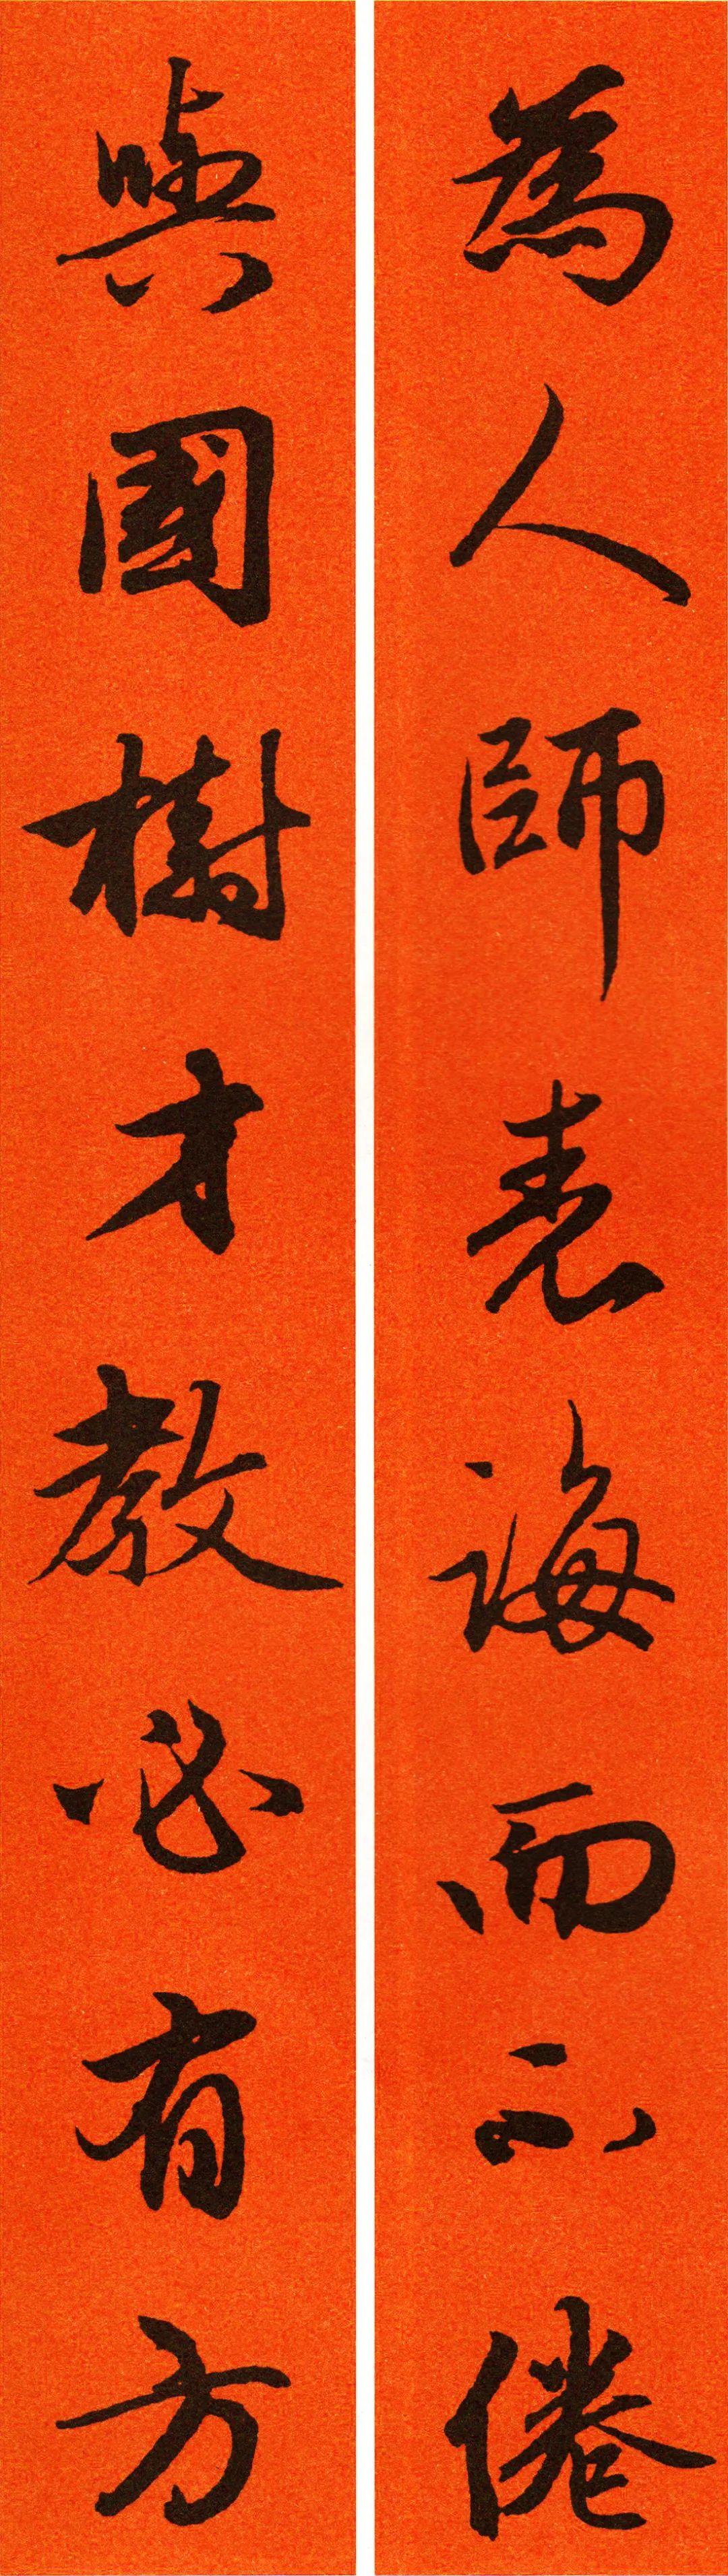 為人師表誨而不倦
與國樹才教必有方